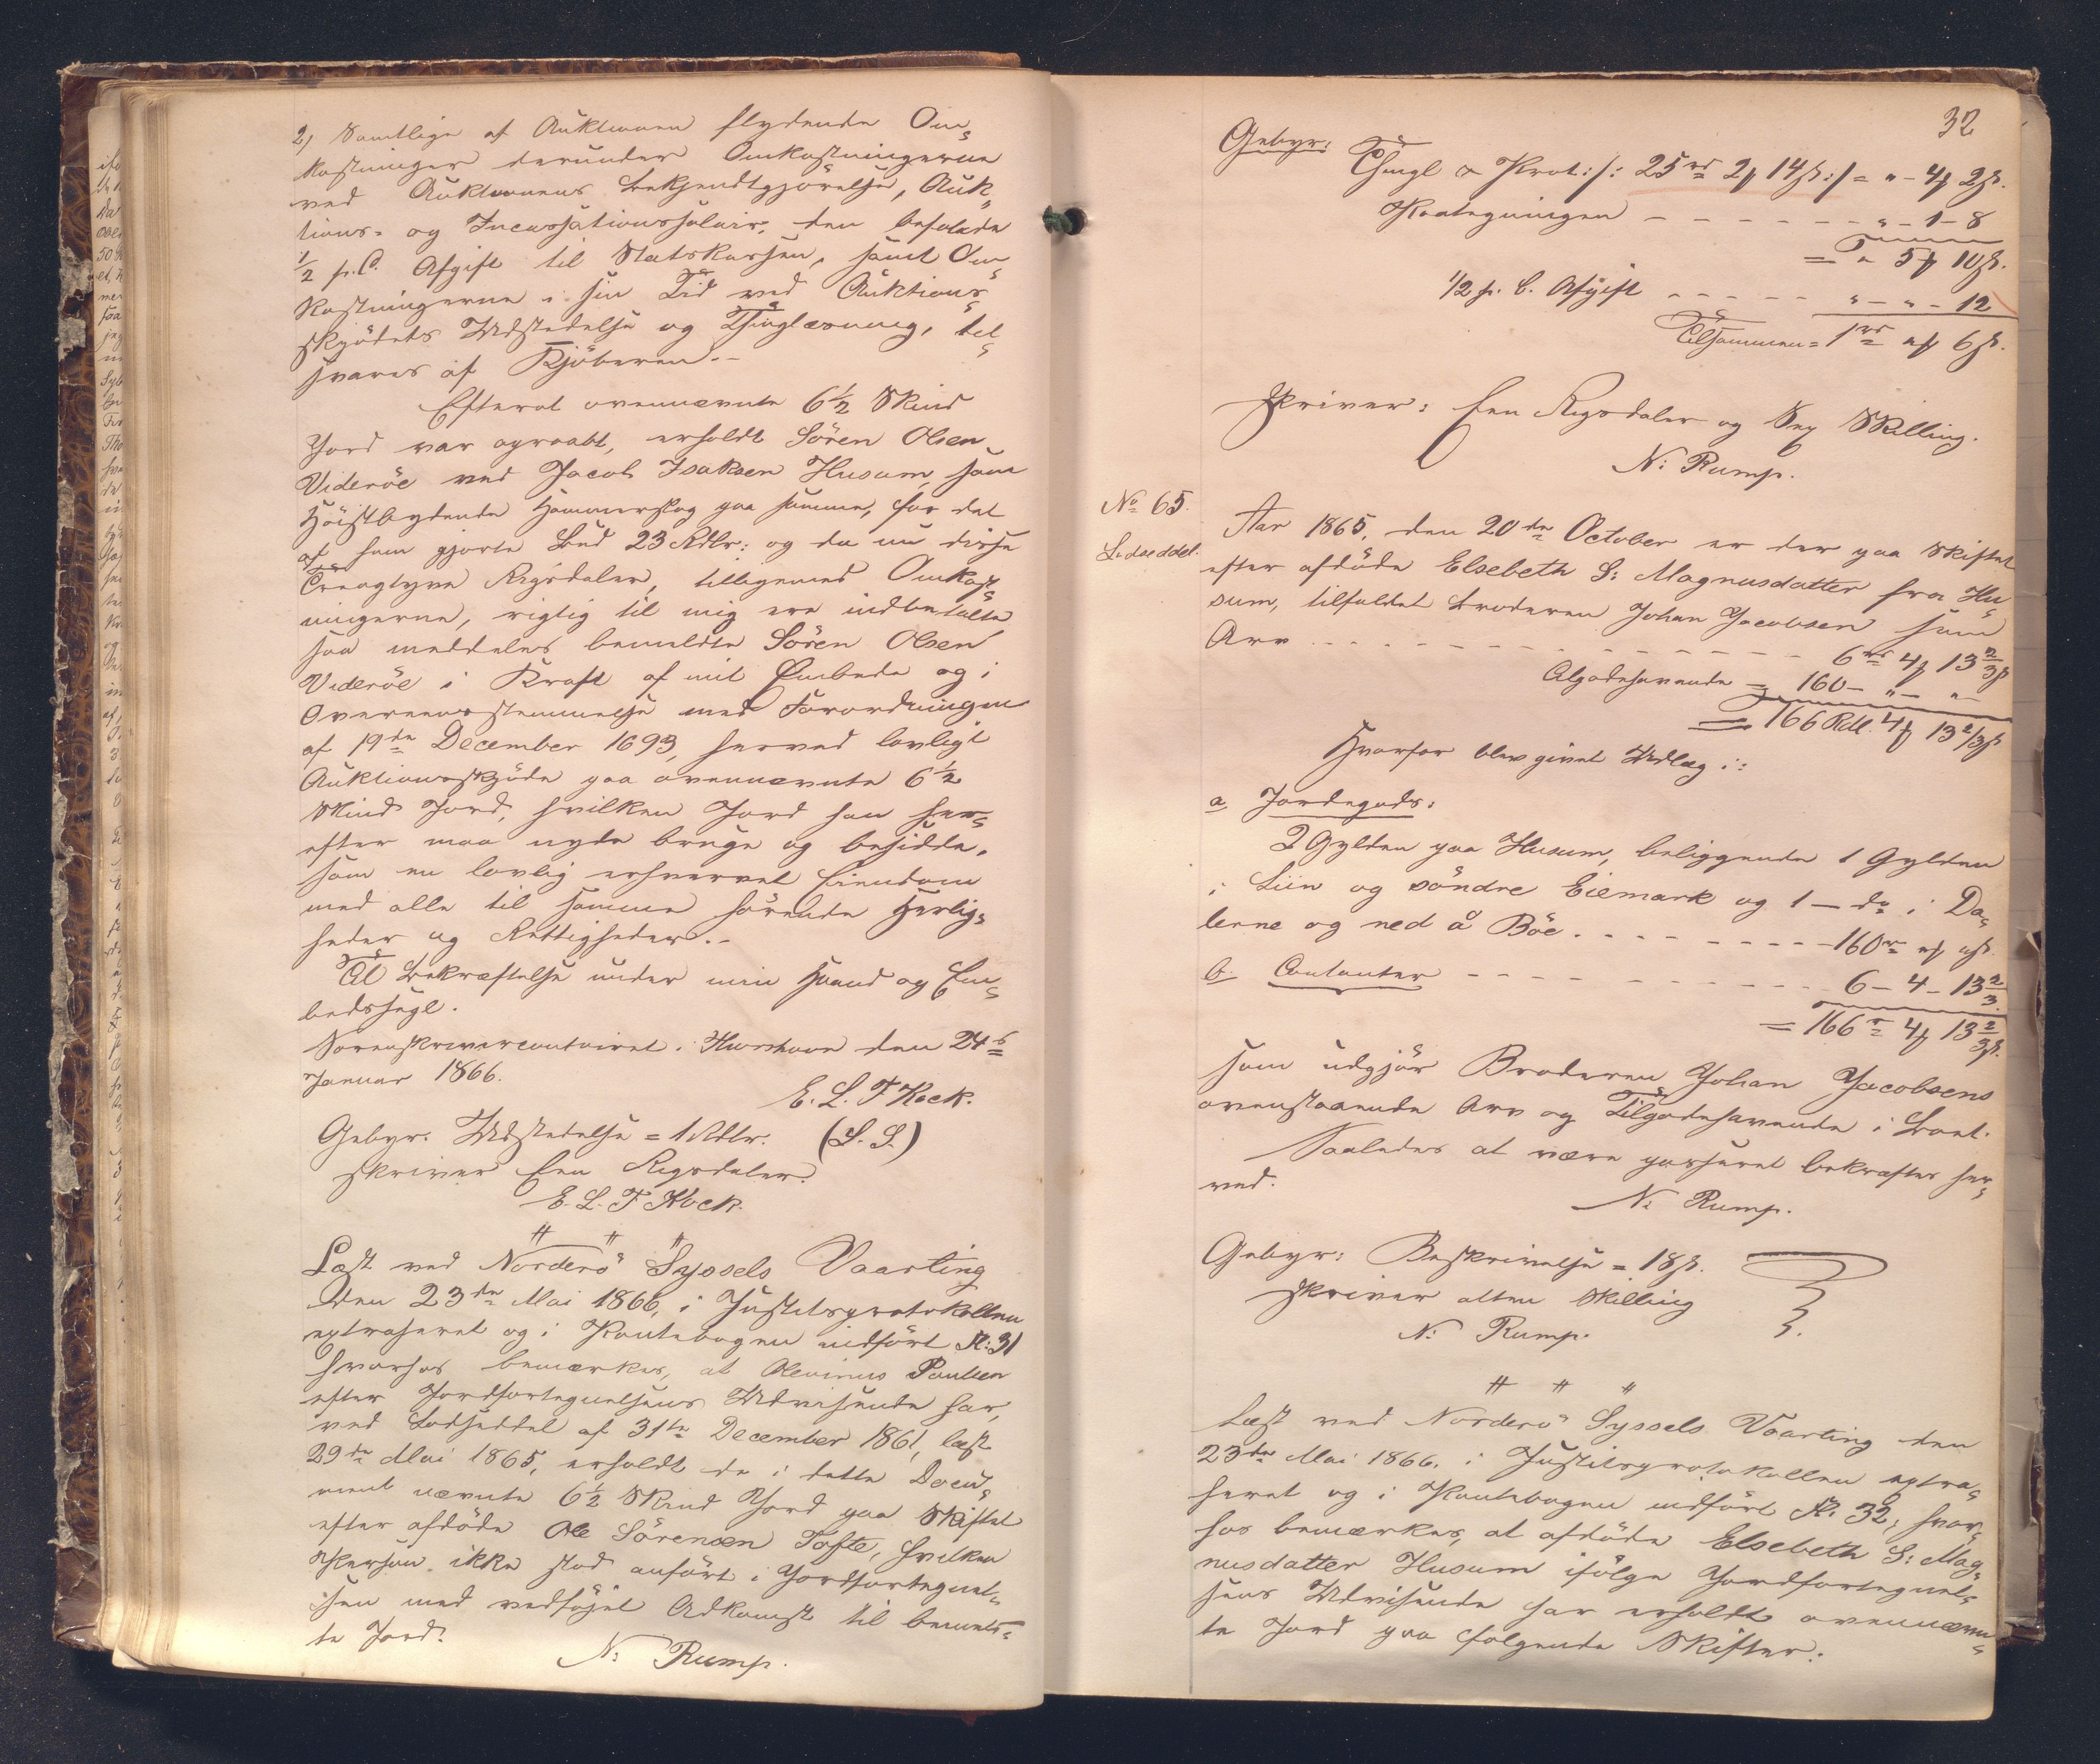 2) Samtlige af Auktionen flydende Om-
kostninger derunder Omkostningerne
ved Auktionens Bekjendtgjörelse, Auk-
tions- og Incassationssalair, den befalede
1/2 p.C. Afgift til Statskassen, samt Om-
kostningerne i sin Tid ved Auktions-
skjödets Udstedelse og Thinglæsning, til-
svares af Kjöberen.-
Efterat ovennævnte 6 1/2 Skind
Jord var opraabt, erholdt Sören Olsen
Videröe ved Jacob Isaksen Husum, som
Höistbydende Hammerslag paa samme, for det
af ham gjorte Bud 23 Rdlr: og da nu disse
Treogtyve Rigsdaler, tilligemed Omkost-
ningerne, rigtig til mig ere indbetalte,
saa meddeles bemeldte Sören Olsen
Videröe i Kraft af mit Embede og i
Overeensstemmelse med Forordningen
af 19de December 1693, herved lovligt
Auktionsskjöde paa ovennævnte 6 1/2
Skind Jord, hvilken Jord han her-
efter maa nyde bruge og besidde,
som en lovlig erhvervet Eiendom
med alle til samme hörende Herlig-
heder og Rettigheder.-
Til Bekræftelse under min Haand og Em-
bedssegl.
Sorenskrivercontoiret i Thorshavn den 24de
Januar 1866.
E. L. T Kock.
Gebyr. Udstedelse = 1 Rdlr. (L. S.)
skriver Een Rigsdaler.
E. L. T Kock.
" " "
Læst ved Norderö Syssels Vaarting
den 23de Mai 1866, i Justitsprotokollen
extraheret og i Pantebogen indfört Fl: 31
hvorhos bemærkes, at Olevinus Poulsen
efter Jordfortegnelsens Udvisende har,
ved Lodseddel af 31te December 1861, læst
29de Mai 1865, erholdt de i dette Docu-
ment nævnte 6 1/2 Skind Jord paa Skiftet
efter afdöde Ole Sörensen Tofte, hvilken
Person ikke stod anfört i Jordfortegnel-
sen med vedföjet Adkomst til bemeld-
te Jord.
N: Rump.
32
Gebyr: Thingl & Prot:/: 25 rd 2 ℳ 14 ß :/ = " - 4 ℳ 2 ß.
Paategningen - - - - - - " - 1 - 8
= " 5 ℳ 10 ß.
1/2 p. C. Afgift - - - - - " - " - 12
Tilsammen = 1 rd " ℳ 6 ß.
skriver: Een Rigsdaler og Sex Skilling.
N: Rump.
No 65.
Lodseddel.
Aar 1865, den 20de October er der paa Skiftet
efter afdöde Elsebeth S: Magnusdatter fra Hu-
sum, tilfaldet Broderen Johan Jacobsen som
Arv - - - - - - - - 6 rd 4 ℳ 13 2/3 ß
Tilgodehavende = 160 - " - "
= 166 Rdl. 4 ℳ 13 2/3 ß
Hvorfor blev givet Udlæg i:
a, Jordegods:
2 Gylden paa Husum, beliggende 1 Gylden
i Liin og söndre Eiemark og 1 - do i Da-
lerne og ned å Böe. - - - - - - 160 rd " ℳ " ß.
b. Contanter - - - - - - - 6 - 4 - 13 2/3
= 166 rd 4 ℳ 13 2/3 ß.
som udgjör Broderen Johan Jacobsens
ovenstaaende Arv og Tilgodehavende i Boet.
Saaledes at være passeret bekræftes her-
ved.
N: Rump.
Gebyr: Beskrivelse = 18 ß.
skriver atten Skilling
N: Rump.
" " "
Læst ved Norderö Syssels Vaarting den
23de Mai 1866. i Justitsprotokollen extra-
heret og i Pantebogen indfört Fl. 32, hvor-
hos bemærkes, at afdöde Elsebeth S: Mag-
nusdatter Husum ifölge Jordfortegnel-
sens Udvisende har erholdt ovennævn-
te Jord paa fölgende Skifter: